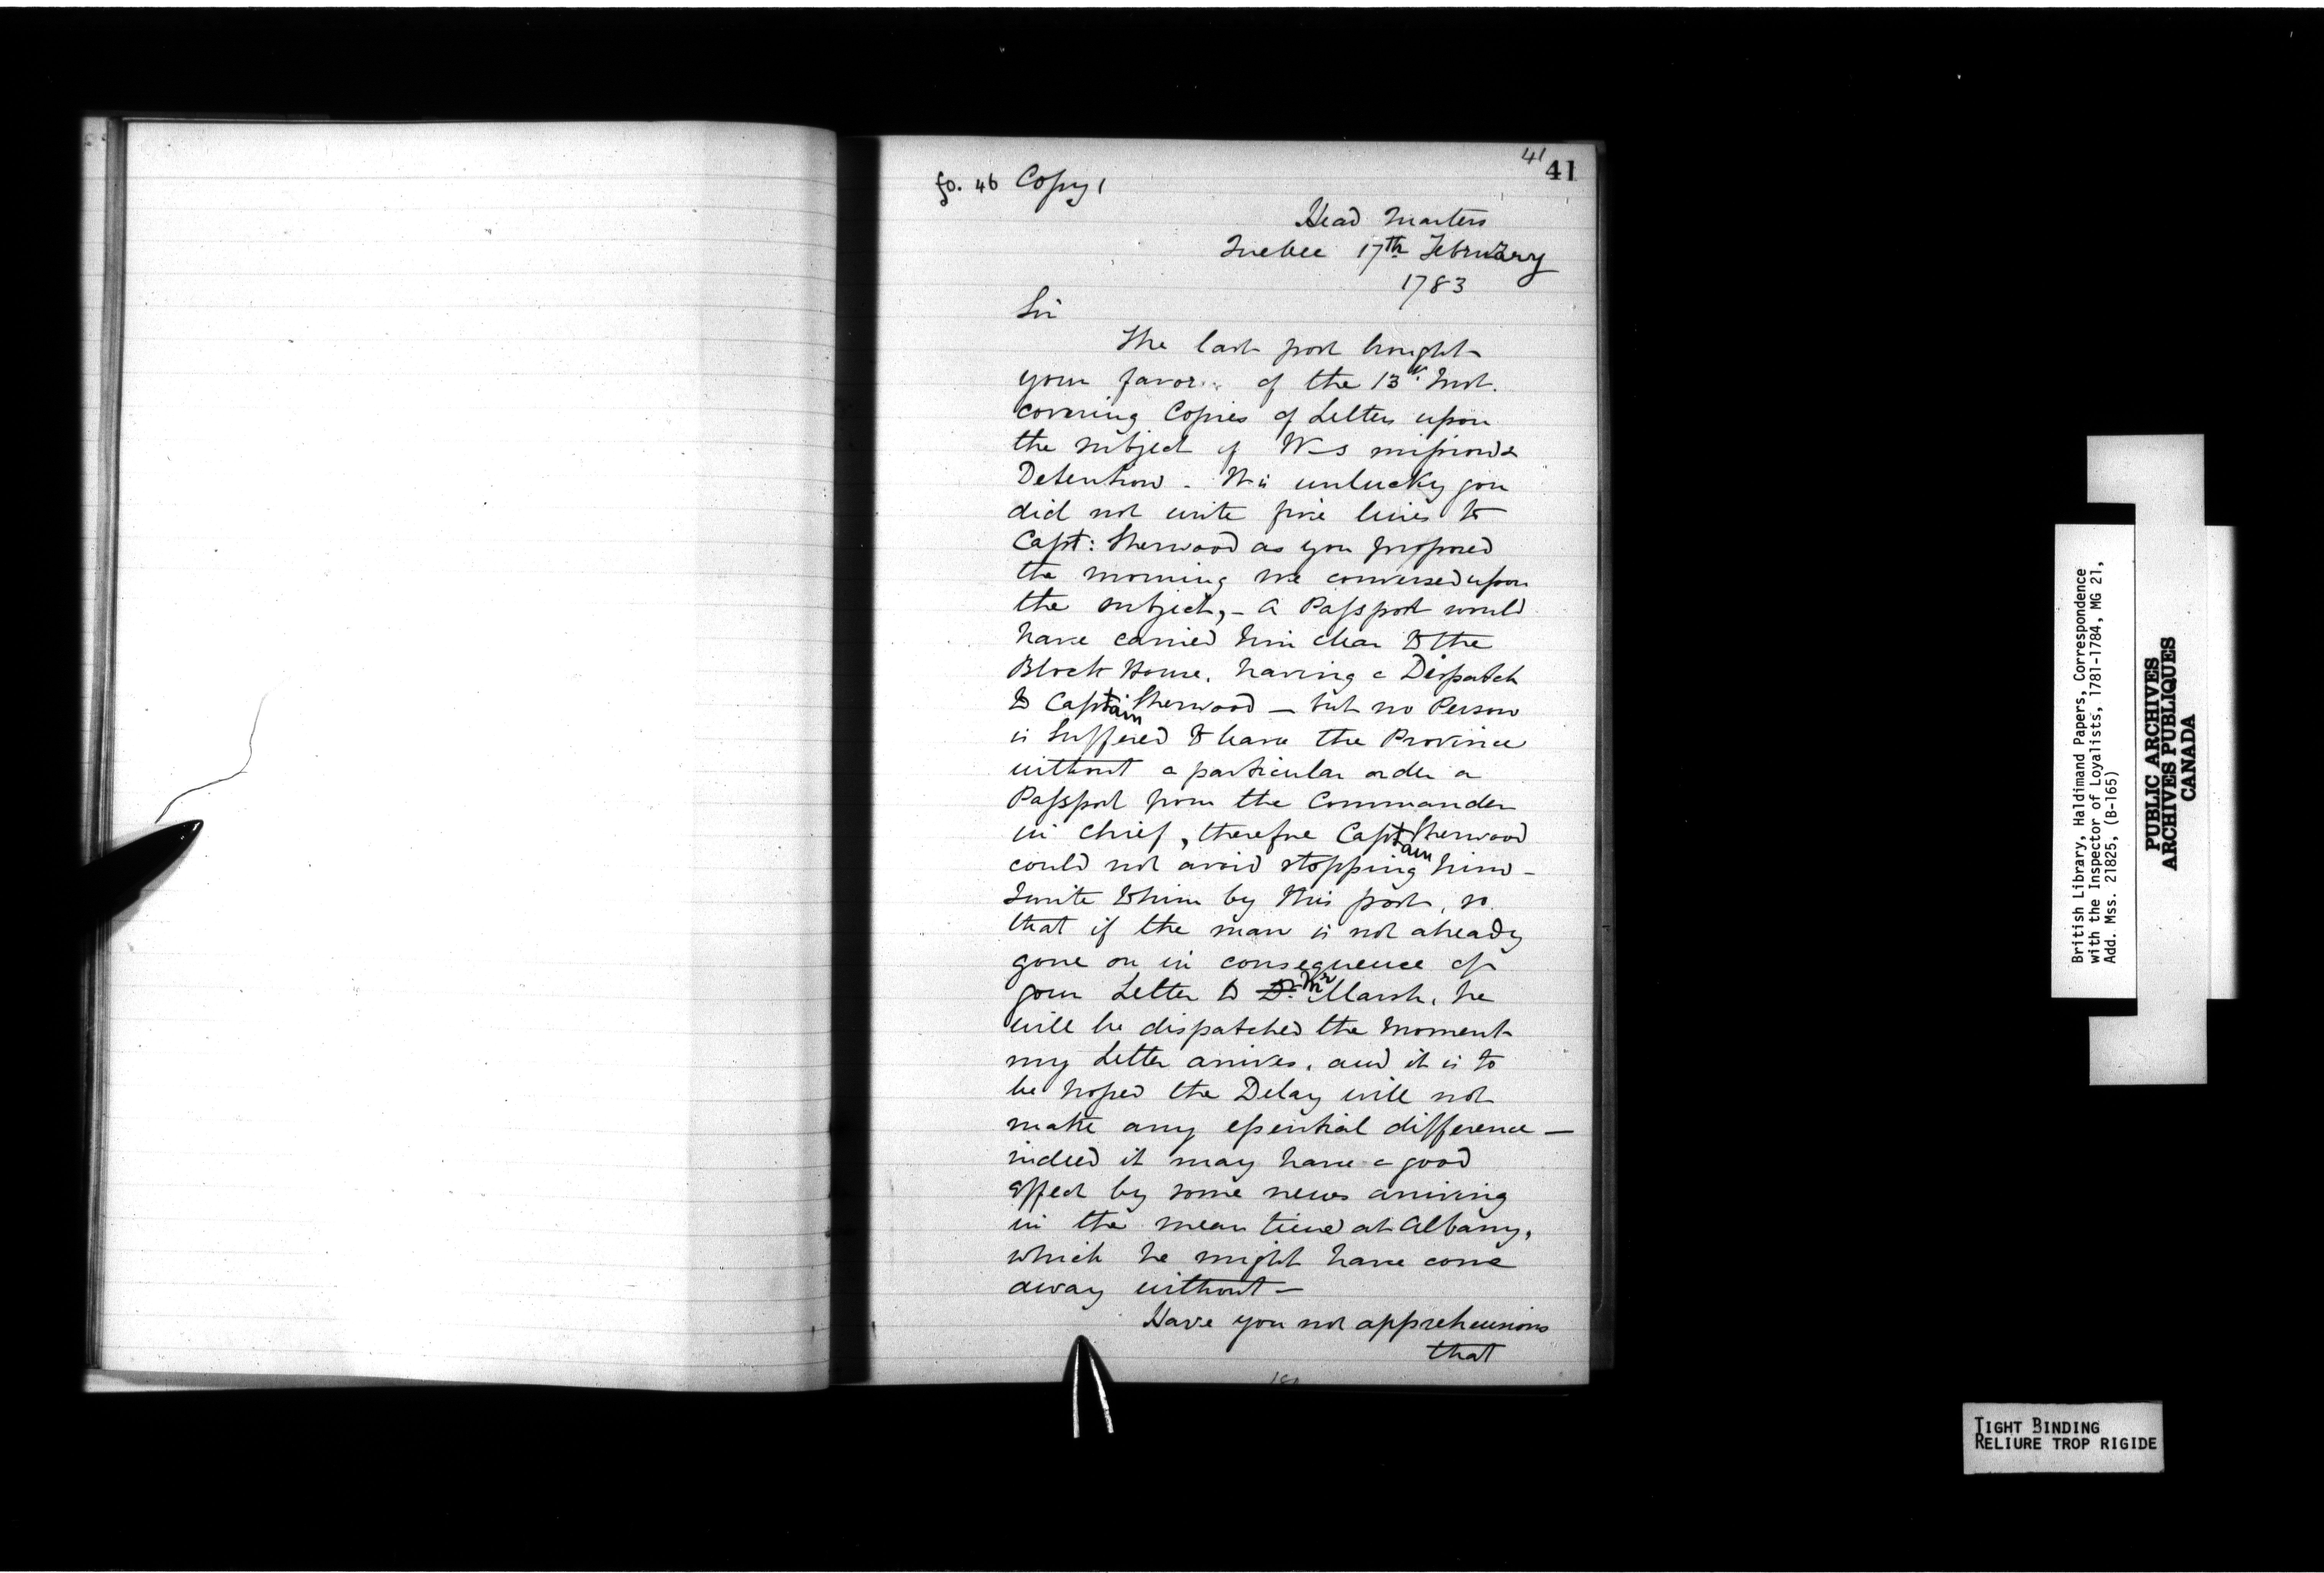 41
41
fo. 46 Copy
Head Quarters
Quebec 17th February
1783
Sir
The last post brought
your favor of the 13th Inst.
covering Copies of Letters upon
the subject of W—s mission &
Detention - Tis unlucky you
did not write five lines to
Capt: Sherwood as you proposed
the morning we conversed upon
the subject, - a Passport would
have carried him clear to the
Block House, having a Dispatch
to Captain Sherwood — but no Person
is Suffered to leave the Province
without a particular order or
Passport from the Commander
in Chief, therefore Captain Sherwood
could not avoid stopping him -
I write to him by this post, so
that if the man is not already
gone on in consequence of
your Letter to Dr. Mr Marsh, he
will be dispatched the moment
my Letter arrives, and it is to
be hoped the Delay will not
make any essential difference —
indeed it may have a good
effect by some news arriving
in the mean time at Albany,
which he might have come
away without —
Have you not apprehensions
that
British Library, Haldimand Papers, Correspondence
with the Inspector of Loyalists, 1781-1784, MG 21,
Add. Mss. 21825, (B-165)
PUBLIC ARCHIVES
ARCHIVES PUBLIQUES
CANADA
TIGHT BINDING
RELIURE TROP RIGIDE